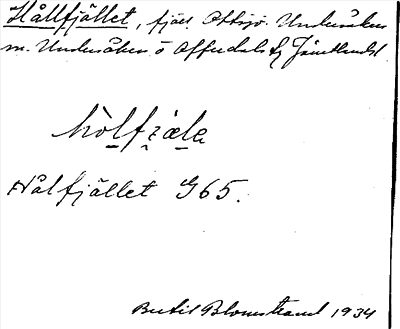 Hållfjället, fjäll Ottsjö. Undersåkers
m. Undersåkers o Offerdals tg Jämtlands l
hòlfjæla
Hålfjället G65.
Bertil Blomstrand 1934